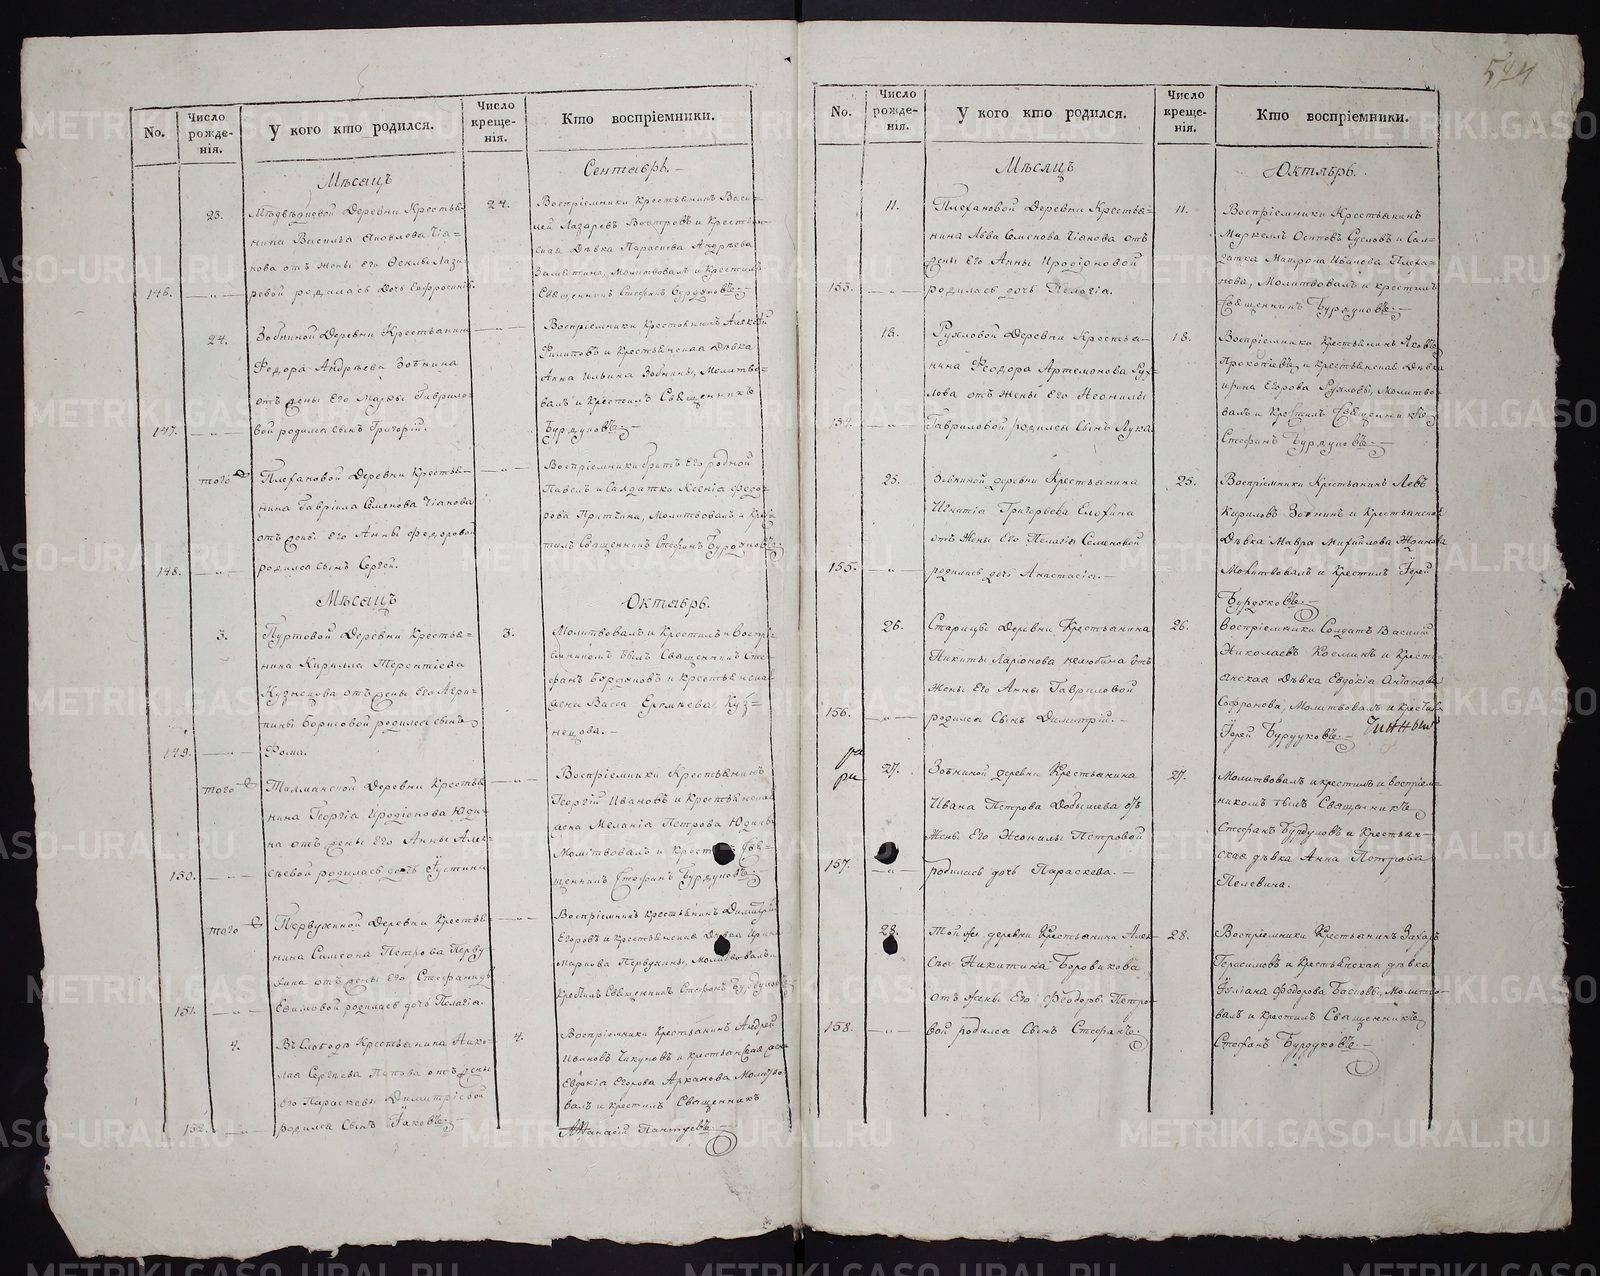 524
No.
Число рожде-нія.
У кого кто родился.
Число креще-нія.
Кто воспріемники.
Мѣсяцъ
Сентябрь.
23.
24.
Медвѣдчевой Деревни Крестья=
нина Василья Яковлева
нова отъ жены Его Ѳеклы Лаза-
146.
ревой родилась Дочь Евфросинія.
Воспріемники Крестьянинъ Васи-
лей Лазаревъ и Крестьян-
ская Дѣвка Параскева Андрѣева
Замятина, Молитвовалъ и Крестилъ
Священникъ Стефанъ Бурдуковъ.
24.
Зобниной Деревни Крестьянина
Федора Андрѣева Зобнина
отъ жены Его Марѳы Гаврило-
147.
вой родился сынъ Григорій.
Воспріемники Крестьянинъ Алексѣй
Филиповъ и Крестьянская Дѣвка
Анна Ильина Зобнины, Молитво-
валъ и Крестилъ Священникъ
Бурдуковъ.
того
Плехановой Деревни Крестья-
нина Гавріила Семенова
отъ жены Его Анны Федоровой
148.
родился сынъ Сергей.
Воспріемники братъ Его родной
Павелъ и Салдатка Ксенія Федо-
рова Притчина, Молитвовалъ и Крес-
тилъ Священникъ Стефанъ Бурдуковъ.
Мѣсяцъ
Октябрь.
3.
3.
Пуртовой Деревни Крестья=
нина Кирилла Терентіева
Кузнецова отъ жены Его Агри-
пины Борисовой родился сынъ
149.
Фома.
Молитвовалъ и Крестилъ и Воспрі-
емникомъ былъ Священникъ Сте-
фанъ Бурдуковъ и Крестьянская
жена Васса Куз=
нецова.
того
Крестья-
нина Георгія Иродіонова Юди-
на отъ жены Его Анны Алек-
150.
сѣевой родилась дочь Іустина
Воспріемники Крестьянинъ
Георгій Ивановъ и Крестьянская
жена Меланія Петрова
Молитвовалъ и Крестилъ Свя-
щенникъ Стефанъ Бурдуковъ.
того
Первухиной Деревни Крестья-
нина Симеона Петрова Перву-
хина отъ жены Его Стефаниды
151.
Евимовой родилась дочь Пелагія.
Воспріемники Крестьянинъ Димитрій
Егоровъ и Крестьянская Дѣвка Ирина
Маркова Первухины, Молитвовалъ и
Крестилъ Священникъ Стефанъ Бурдуковъ
4.
4.
Въ Слободѣ Крестьянина Нико-
лая Сергѣева Попова отъ жены
Его Параскевы Димитріевой
152.
родился Сынъ Іаковъ.
Воспріемники Крестьянинъ Андрей
Ивановъ Чикуновъ и Крестьянская жена
Евдокія Егорова Арканова Молитво-
валъ и крестилъ Священникъ
Аѳанасій Пантуевъ.
No.
Число рожде-нія.
У кого кто родился.
Число креще-нія.
Кто воспріемники.
Мѣсяцъ
Октябрь.
11.
11.
Плехановой Деревни Крестья=
нина Льва Семенова отъ
жены Его Анны Иродіоновой
153.
родилась дочь Пелагія.
Воспріемники Крестьянинъ
Маркеллъ Осиповъ Сусловъ и Сал-
датка Матрона Ивалева Плеха-
нова, Молитвовалъ и крестилъ
Священникъ Бурдуковъ.
18.
18.
Рухловой Деревни Крестья-
нина Феодора Артемонова Рух-
лова отъ жены Его Неонилы
154.
Гавриловой родился сынъ Лука.
Воспріемники Крестьянинъ Яковъ
Прокопіевъ и Крестьянская Дѣвка
Ирина Егорова Рухловы, Молитво-
валъ и Крестилъ Священникъ
Стефанъ Бурдуковъ.
25.
25.
Зобниной деревни Крестьянина
Игнатія Григорьева Елохина
отъ жены Его Пелагіи Семеновой
155.
родилась дочь Анастасія.
Воспріемники Крестьянинъ Левъ
Кириловъ Зобнинъ и Крестьянская
Дѣвка Мавра Михайлова
Молитвовалъ и Крестилъ Іерей
Бурдуковъ.
26.
26.
Старицы Деревни Крестьянина
Никиты Ларіонова Нелюбина отъ
жены Его Анны Гавриловой
156.
родился Сынъ Димитрій.
Воспріемники Солдатъ Василій
Николаевъ Косминъ и Кресть-
янская Дѣвка Евдокія Антонова
Софронова, Молитвовалъ и крестилъ
Іерей Бурдуковъ.
27.
27.
Зобниной деревни Крестьянина
Ивана Петрова Добышева отъ
жены Его Неонилы Петровой
157.
родилась дочь Параскева.
Молитвовалъ и крестилъ и воспріем-
никомъ былъ Священникъ
Стефанъ Бурдуковъ и Крестьян-
ская дѣвка Анна Петрова
Пелевина.
28.
28.
Той же деревни Крестьянина Алек-
сѣя Никитина Боровикова
отъ жены Его Феодоры Петро-
158.
вой родился Сынъ Стефанъ.
Воспріемники Крестьянинъ Захаръ
Герасимовъ и Крестьянская дѣвка
Іуліана Федорова Басповы, Молитво-
валъ и Крестилъ Священникъ
Стефанъ Бурдуковъ.
METRIKI.GASO-URAL.RU